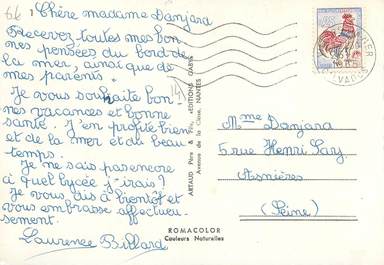 66
Chère madame Danjara
Recevez toutes mes bon
nes pensées du bord de
la mer, ainsi que de
mes parents.
Je vous souhaite bon
nes vacances et bonne
santé. J'en profite bien
et de la mer et du beau
temps.
Je ne sais pas encore
à quel lycée j'irais?
Je vous dis à bientôt et
vous embrasse affectueu-
sement.
Laurence Billard
ARTAUD Père & Fils, EDITIONS GABY
Avenue de la Close, NANTES
Mme Danjara
5 rue Henri Say
Asnières
(Seine)
ROMACOLOR
Couleurs Naturelles